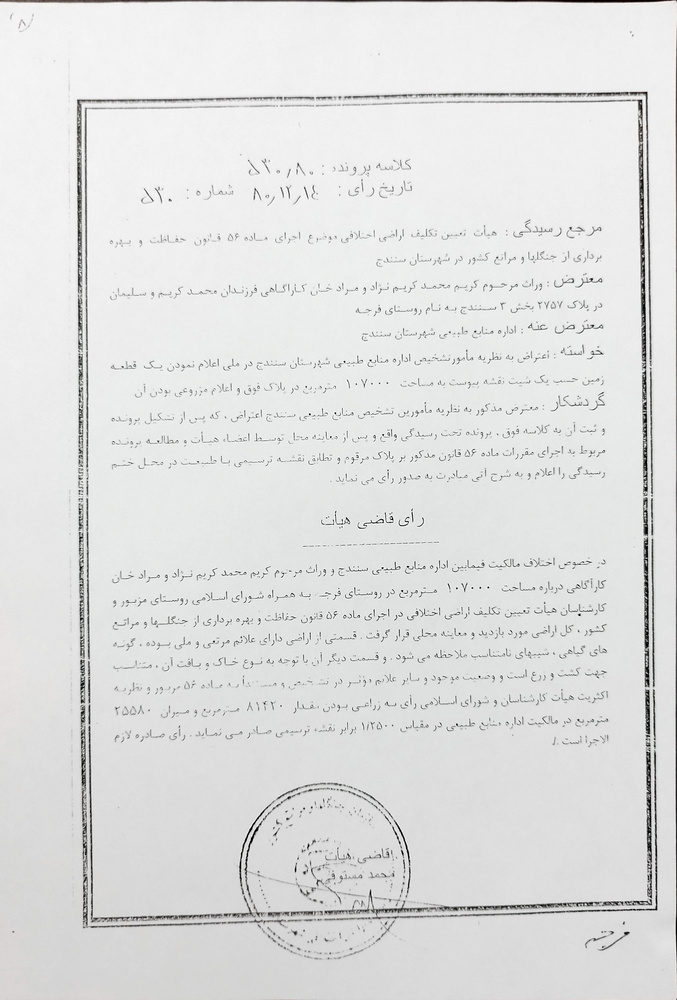 کلاسه پرونده : ۵۳۰٫۸۰
تاریخ رأی : ۸۰٫۱۲٫۱۴ شماره : ۵۳۰
مرجع رسیدگی : هیأت تعیین تکلیف اراضی اختلافی موضوع اجرای ماده ۵۶ قانون حفاظت و بهره
برداری از جنگلها و مراتع کشور در شهرستان سنندج
معترض : وراث مرحوم کریم محمد کریم نژاد و مراد خان کاراگاهی فرزندان محمد کریم و سلیمان
در پلاک ۲۷۵۷ بخش ۳ سنندج به نام روستای فرجه
معترض عنه : اداره منابع طبیعی شهرستان سنندج
خواسته : اعتراض به نظریه مأمورتشخیص اداره منابع طبیعی شهرستان سنندج در ملی اعلام نمودن یک قطعه
زمین حسب یک شیت نقشه پیوست به مساحت ۱۰۷۰۰۰ مترمربع در پلاک فوق و اعلام مزروعی بودن آن
گردشکار : معترض مذکور به نظریه مأمورین تشخیص منابع طبیعی سنندج اعتراض ، که پس از تشکیل پرونده
و ثبت آن به کلاسه فوق ، پرونده تحت رسیدگی واقع و پس از معاینه محل توسط اعضاء هیأت و مطالعه پرونده
مربوط به اجرای مقررات ماده ۵۶ قانون مذکور بر پلاک مرقوم و تطابق نقشه ترسیمی با طبیعت در محل ختم
رسیدگی را اعلام و به شرح آتی مبادرت به صدور رأی می نماید .
رأی قاضی هیأت
در خصوص اختلاف مالکیت فیمابین اداره منابع طبیعی سنندج و وراث مرحوم کریم محمد کریم نژاد و مراد خان
کارآگاهی درباره مساحت ۱۰۷۰۰۰ مترمربع در روستای فرجه به همراه شورای اسلامی روستای مزبور و
کارشناسان هیأت تعیین تکلیف اراضی اختلافی در اجرای ماده ۵۶ قانون حفاظت و بهره برداری از جنگلها و مراتع
کشور ، کل اراضی مورد بازدید و معاینه محلی قرار گرفت . قسمتی از اراضی دارای علائم مرتعی و ملی بوده ، گونه
های گیاهی ، شیبهای نامتناسب ملاحظه می شود . و قسمت دیگر آن با توجه به نوع خاک و بافت آن ، متناسب
جهت کشت و زرع است و وضعیت موجود و سایر علائم مؤثر در تشخیص و مستنداً به ماده ۵۶ مزبور و نظریه
اکثریت هیأت کارشناسان و شورای اسلامی رأی به زراعی بودن مقدار ۸۱۴۲۰ مترمربع و میزان ۲۵۵۸۰
مترمربع در مالکیت اداره منابع طبیعی در مقیاس ۱/۲۵۰۰ برابر نقشه ترسیمی صادر می نماید . رأی صادره لازم
الاجرا است ./
قاضی هیأت
محمد مستوفی